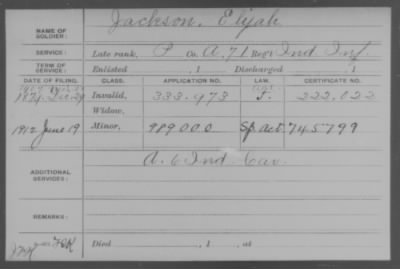 NAME OF SOLDIER: Jackson, Elijah
SERVICE: Late rank, P Co. A, 71 Reg't Ind Inf.
TERM OF SERVICE: Enlisted , 1 Discharged , 1
DATE OF FILING. CLASS. APPLICATION NO. LAW. CERTIFICATE NO.
Invalid, 333.973 222.022
Widow,
1912 June 19 Minor, 989000 Sp. Act. 745799
ADDITIONAL SERVICES: A. 6 Ind Cav.
REMARKS:
Died , 1 , at